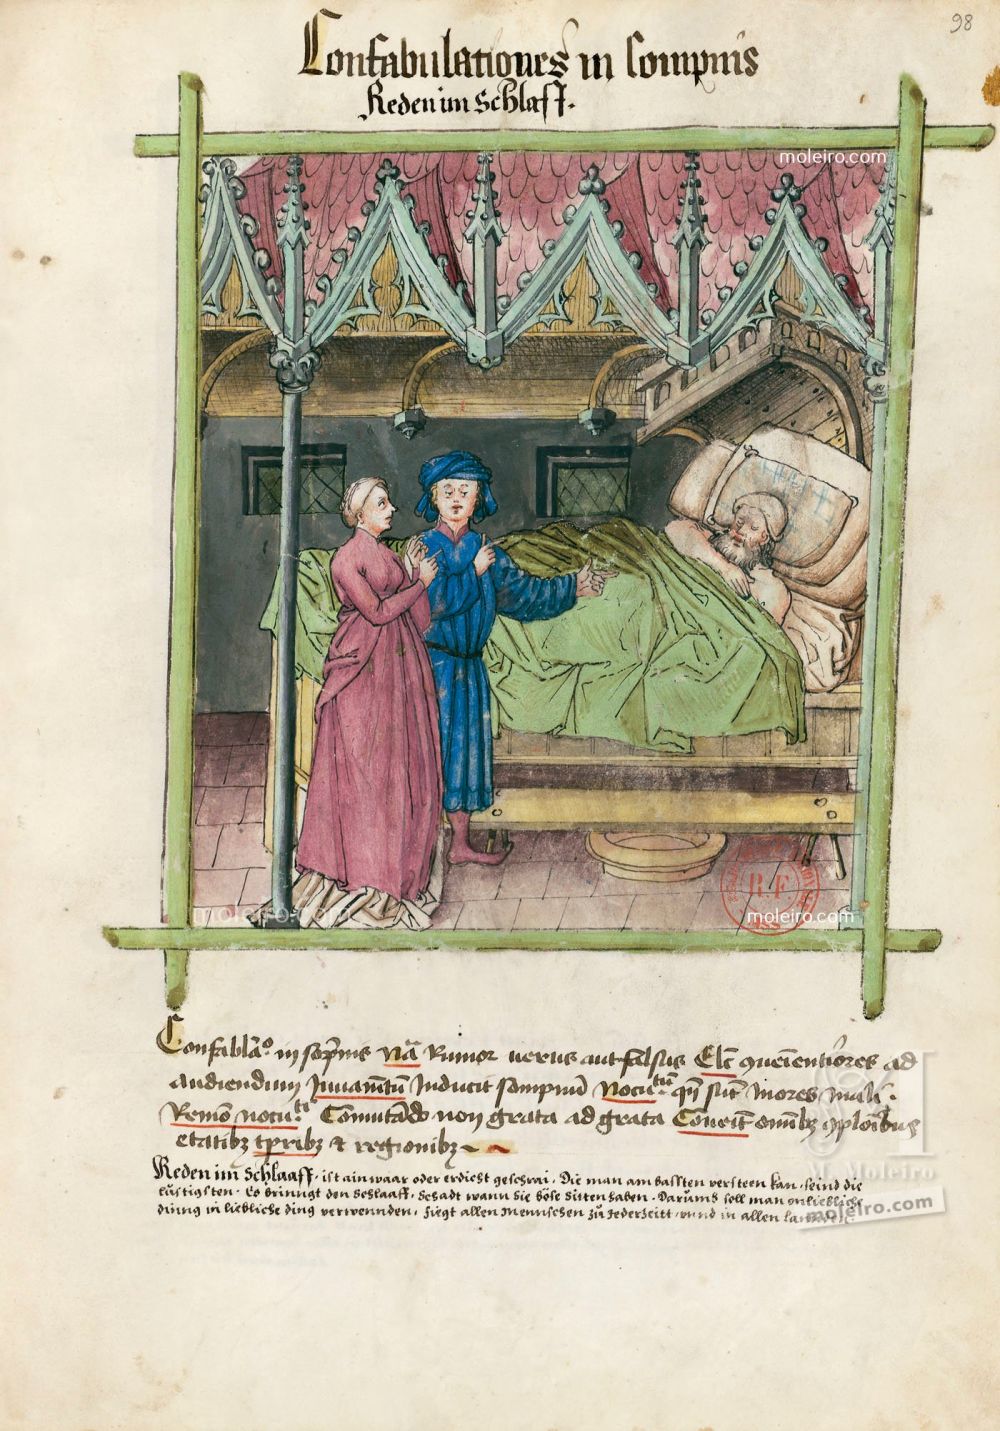 98
Confabulationes in sompnis
Reden im Schlaff.
moleiro.com
moleiro.com
moleiro.com
R.F.
Confablāo. in sōpnis Nā Rumor verus aut falsus Elc̄ ad
audiendum Iuvamtū Inducit sompnū Nocu. qn̄ sūt mores mali.
Remō nocu. Comutādo non grata ad grata Covēit omībꝫ
etatibꝫ tp̄ribꝫ & regionibꝫ
Reden im Schlaaff. ist ain waar oder erdicht geschrai. Die man am bassten versteen kan. seind die
lustigsten. Es brinngt den schlaaff. schadt wann sie böse sitten haben. Darumb soll man unliebliche
dinng in liebliche ding verwennden. fiegt allen mennschen zu jederzeitt. unnd in allen
M. Moleiro
moleiro.com